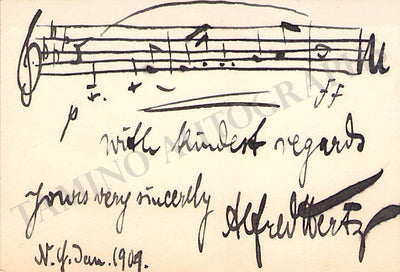 p
ff
with kindest regards
yours very sincerely
Alfred Hertz
N.Y. Jan. 1909.
TAMINO AUTOGRAPHS